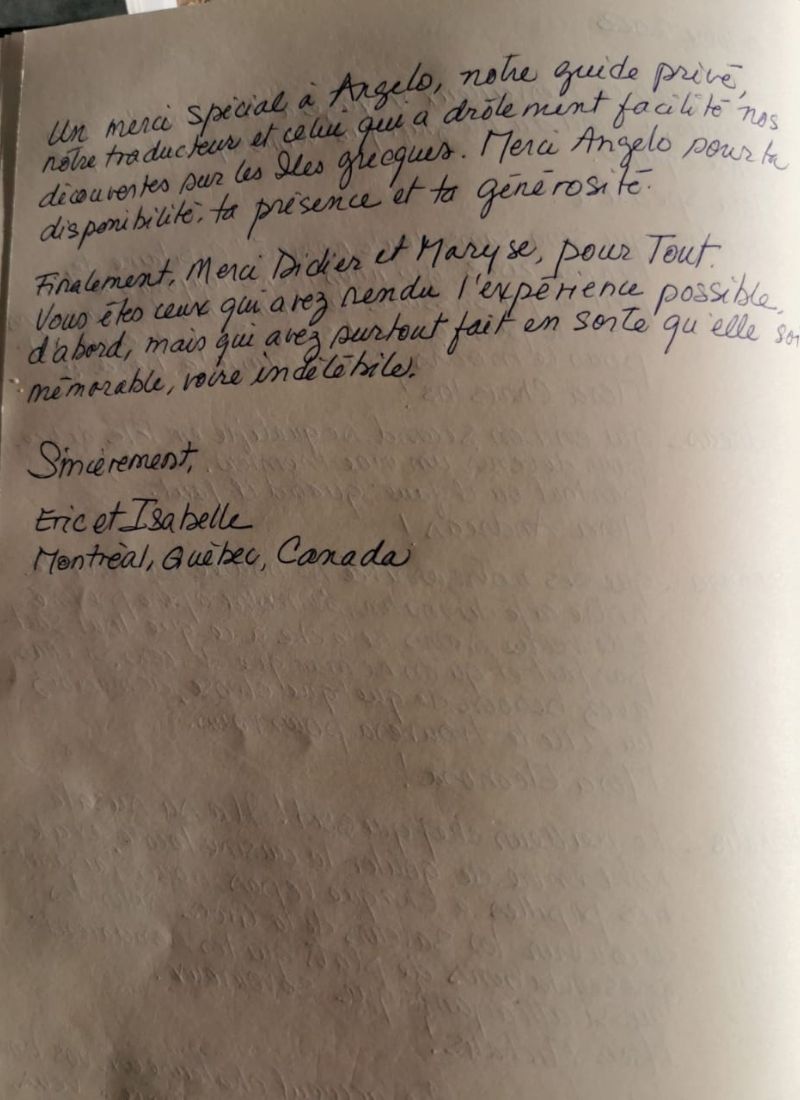 Un merci spécial à Angelo, notre guide privé,
notre traducteur et celui qui a drôlement facilité nos
découvertes sur les Îles grecques. Merci Angelo pour ta
disponibilité, ta présence et ta générosité.
Finalement, Merci Didier et Maryse, pour Tout.
Vous êtes ceux qui avez rendu l'expérience possible,
d'abord, mais qui avez surtout fait en sorte qu'elle soi
mémorable, voire indélébile.
Sincèrement,
Eric et Isabelle
Montréal, Québec, Canada